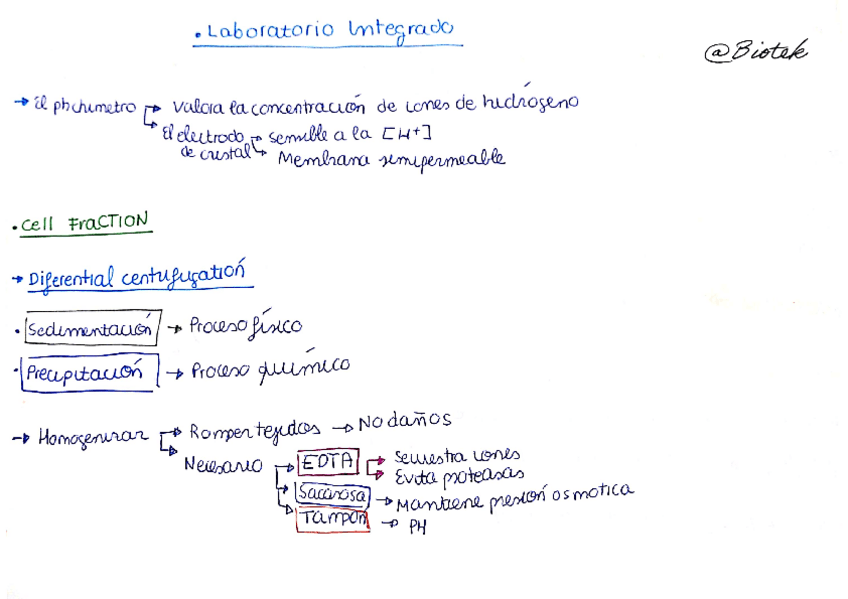 . Laboratorio Integrado
@Biotek
→ El phchimetro → Valora la concentración de iones de hidrógeno
→ El electrodo de cristal → sensible a la [H+]
→ Membrana semipermeable
. Cell FraCTION
→ Diferential centrifugation
. Sedimentación → Proceso físico
. Precipitación → Proceso químico
→ Homogenizar → Romper tejidos → No daños
→ Necesario → EDTA → Secuestra iones
→ Evita proteasas
→ Sacarosa → Mantiene presión osmotica
→ Tampón → PH